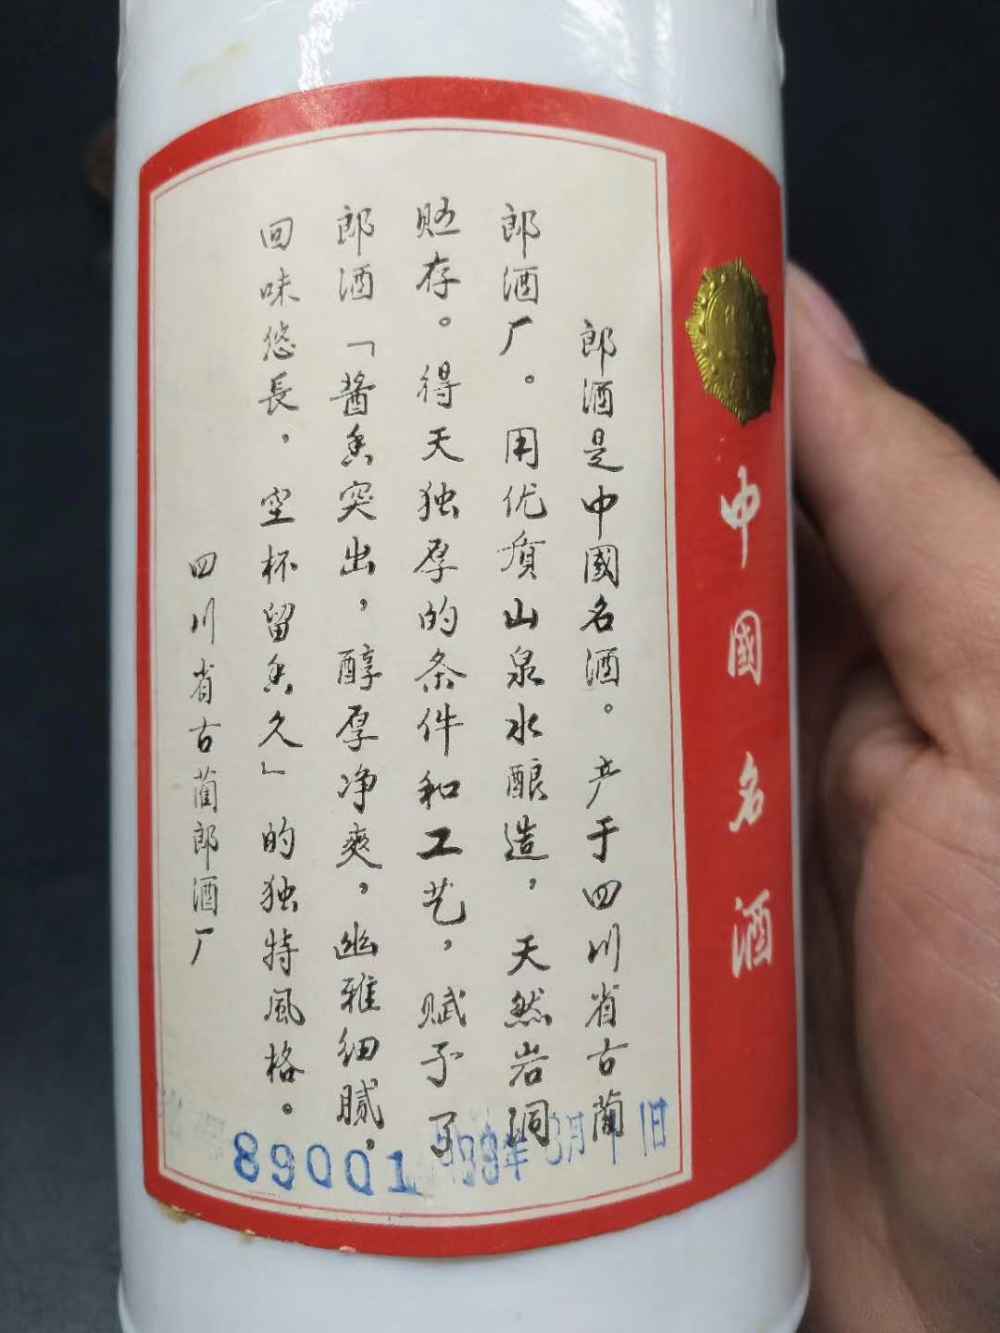 中國名酒
郎酒是中國名酒。产于四川省古蔺
郎酒厂。用优质山泉水酿造，天然岩洞
贮存。得天独厚的条件和工艺，赋予了
郎酒「酱香突出，醇厚净爽，幽雅细腻，
回味悠長，空杯留香久」的独特風格。
四川省古蔺郎酒厂
89001